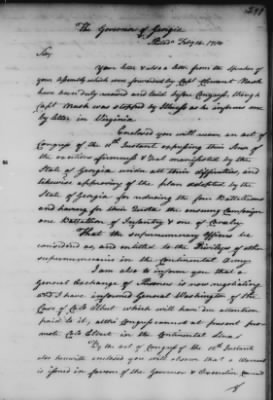 The Governor of Georgia
Philad. Feby 14. 1780
Sir,
Your letter & also a letter from the Speaker of
your Assembly which was forwarded by Capt Clement Nash
have been duly received and laid before Congress, though
Capt Nash was stopped by Illness as he informs me
by letter in Virginia
Enclosed you will receive an act of
Congress of the 11th Instant expressing their Sense of
the exertions firmness & Zeal manifested by the
State of Georgia under all their difficulties, and
likewise approving of the plan adopted by the
State of Georgia for reducing the four Battalions
and having for their Quota the ensuing Campaign
one Battalion of Infantry & one of Cavalry
That the supernumerary officers be
considered as, and entitled to the Privilege of other
supernumeraries in the Continental Army
I am also to inform you that a
General Exchange of Prisoners is now negotiating
and I have informed General Washington of the
Case of Colo Elbert which will have due attention
paid to it, altho Congress cannot at present pro-
mote Colo Elbert in the Continental Line
By the act of Congress of the 12th Instant
also herewith enclosed you will observe that a Warrant
is issued in favour of the Governor & Executive Council